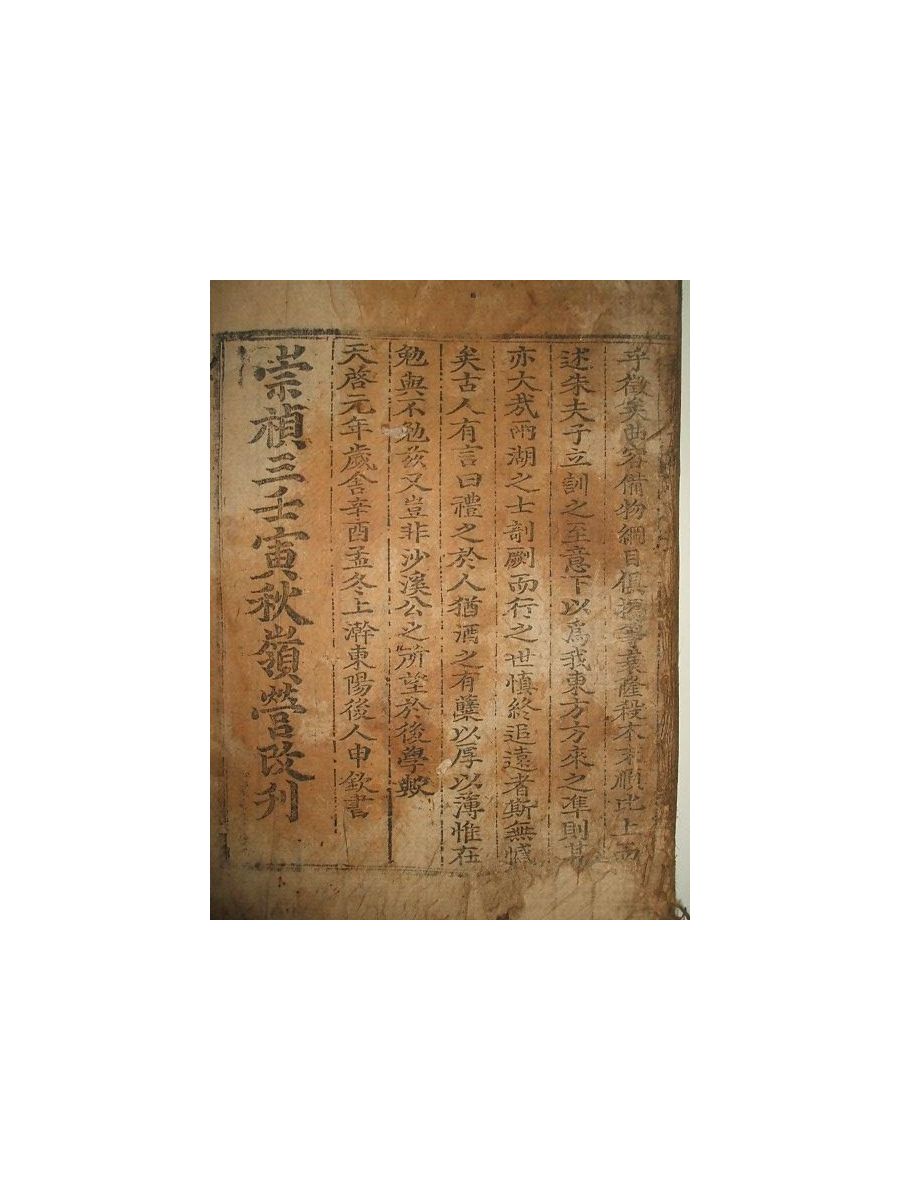 乎徵矣曲容備物綱目俱擧等衰隆殺本末順比上而
述朱夫子立訓之至意下以爲我東方方來之準則其
亦大哉兩湖之士剞劂而行之世愼終追遠者斯無憾
矣古人有言曰禮之於人猶酒之有蘖以厚以薄惟在
勉與不勉玆又豈非沙溪公之所望於後學歟
天啓元年歲舍辛酉孟冬上澣東陽後人申欽書
崇禎三壬寅秋嶺營改刊